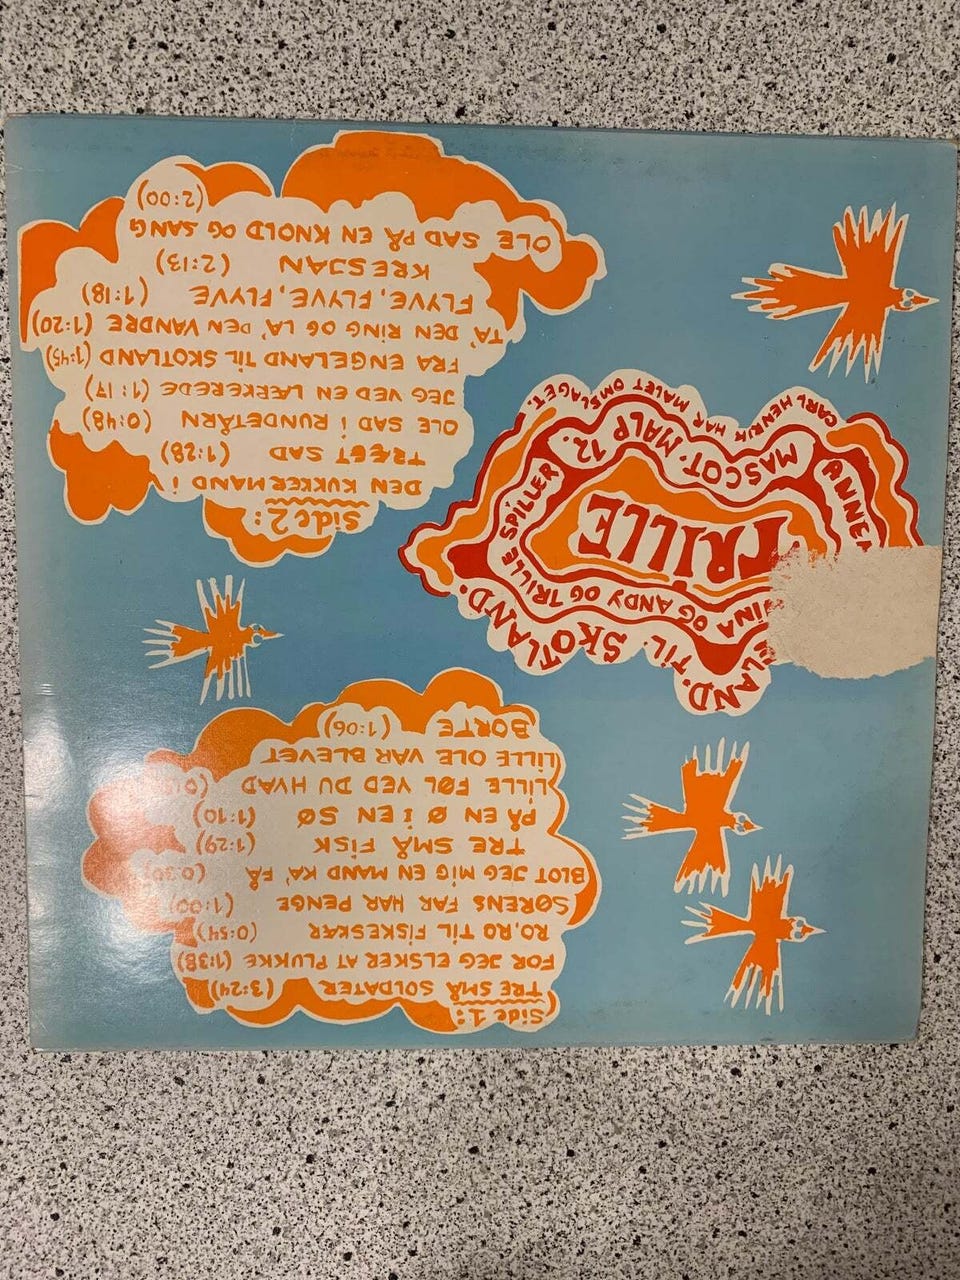 Side 1:
TRE SMÅ SOLDATER (3:24)
FOR JEG ELSKER AT PLUKKE (1:38)
RO, RO TIL FISKESKÆR (0:54)
SØRENS FAR HAR PENGE (1:00)
BLOT JEG MIG EN MAND KA' FÅ
TRE SMÅ FISK (1:29)
PÅ EN Ø I EN SØ (1:10)
LILLE FØL VED DU HVAD
LILLE OLE VAR BLEVET
BORTE (1:06)
LAND. TIL. SKOTLAND.
INA OG ANDY OG TRILLE SPILLER
TRILLE
ANNE
MASCOT. MALP 12.
CARL HENRIK HAR MALET OMSLAGET.
Side 2:
DEN KUKKERMAND I
TRÆET SAD (1:28)
OLE SAD I RUNDETÅRN (0:48)
JEG VED EN LÆRKEREDE (1:17)
FRA ENGELAND TIL SKOTLAND (1:45)
TA' DEN RING OG LA' DEN VANDRE (1:20)
FLYVE, FLYVE, FLYVE (1:18)
KRESJAN (2:13)
OLE SAD PÅ EN KNOLD OG SANG
(2:00)